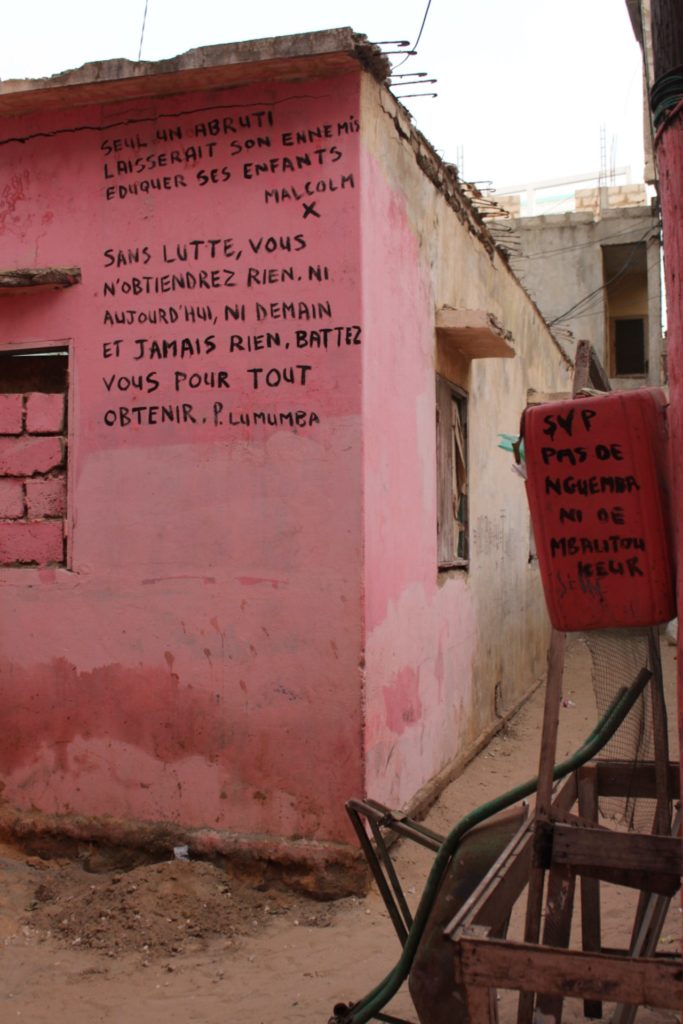 SEUL UN ABRUTI
LAISSERAIT SON ENNEMIS
EDUQUER SES ENFANTS
MALCOLM
X
SANS LUTTE, VOUS
N'OBTIENDREZ RIEN. NI
AUJOURD'HUI, NI DEMAIN
ET JAMAIS RIEN. BATTEZ
VOUS POUR TOUT
OBTENIR. P. LUMUMBA
SVP
PAS DE
NGUEMBA
NI DE
MBALITOU
KEUR